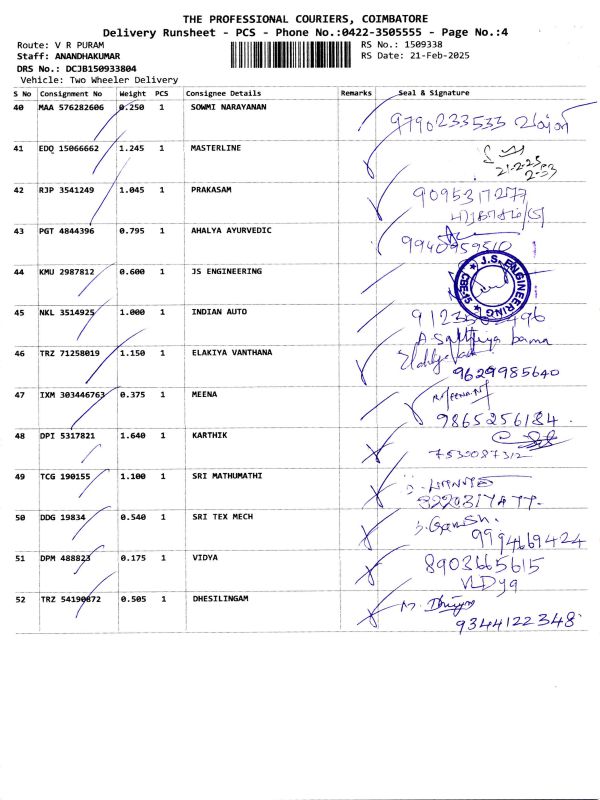 THE PROFESSIONAL COURIERS, COIMBATORE
Delivery Runsheet - PCS - Phone No.:0422-3505555 - Page No.:4
Route: V R PURAM
RS No.: 1509338
Staff: ANANDHAKUMAR
RS Date: 21-Feb-2025
DRS No.: DCJB150933804
Vehicle: Two Wheeler Delivery
S No Consignment No Weight PCS Consignee Details Remarks Seal & Signature
40 MAA 576282606 0.250 1 SOWMI NARAYANAN
9790233533
41 EDQ 15066662 1.245 1 MASTERLINE
21-2-25
2-53
42 RJP 3541249 1.045 1 PRAKASAM
9095317277
43 PGT 4844396 0.795 1 AHALYA AYURVEDIC
9940959510
44 KMU 2987812 0.600 1 JS ENGINEERING
J.S. ENGINEERING
45 NKL 3514925 1.000 1 INDIAN AUTO
A Sathiya bama
46 TRZ 71258019 1.150 1 ELAKIYA VANTHANA
9629985640
47 IXM 303446763 0.375 1 MEENA
9865256184
48 DPI 5317821 1.640 1 KARTHIK
7530087312
49 TCG 190155 1.100 1 SRI MATHUMATHI
50 DDG 19834 0.540 1 SRI TEX MECH
S. Ganesh.
9994669424
51 DPM 488823 0.175 1 VIDYA
8903665615
VIDya
52 TRZ 54190872 0.505 1 DHESILINGAM
9344122348